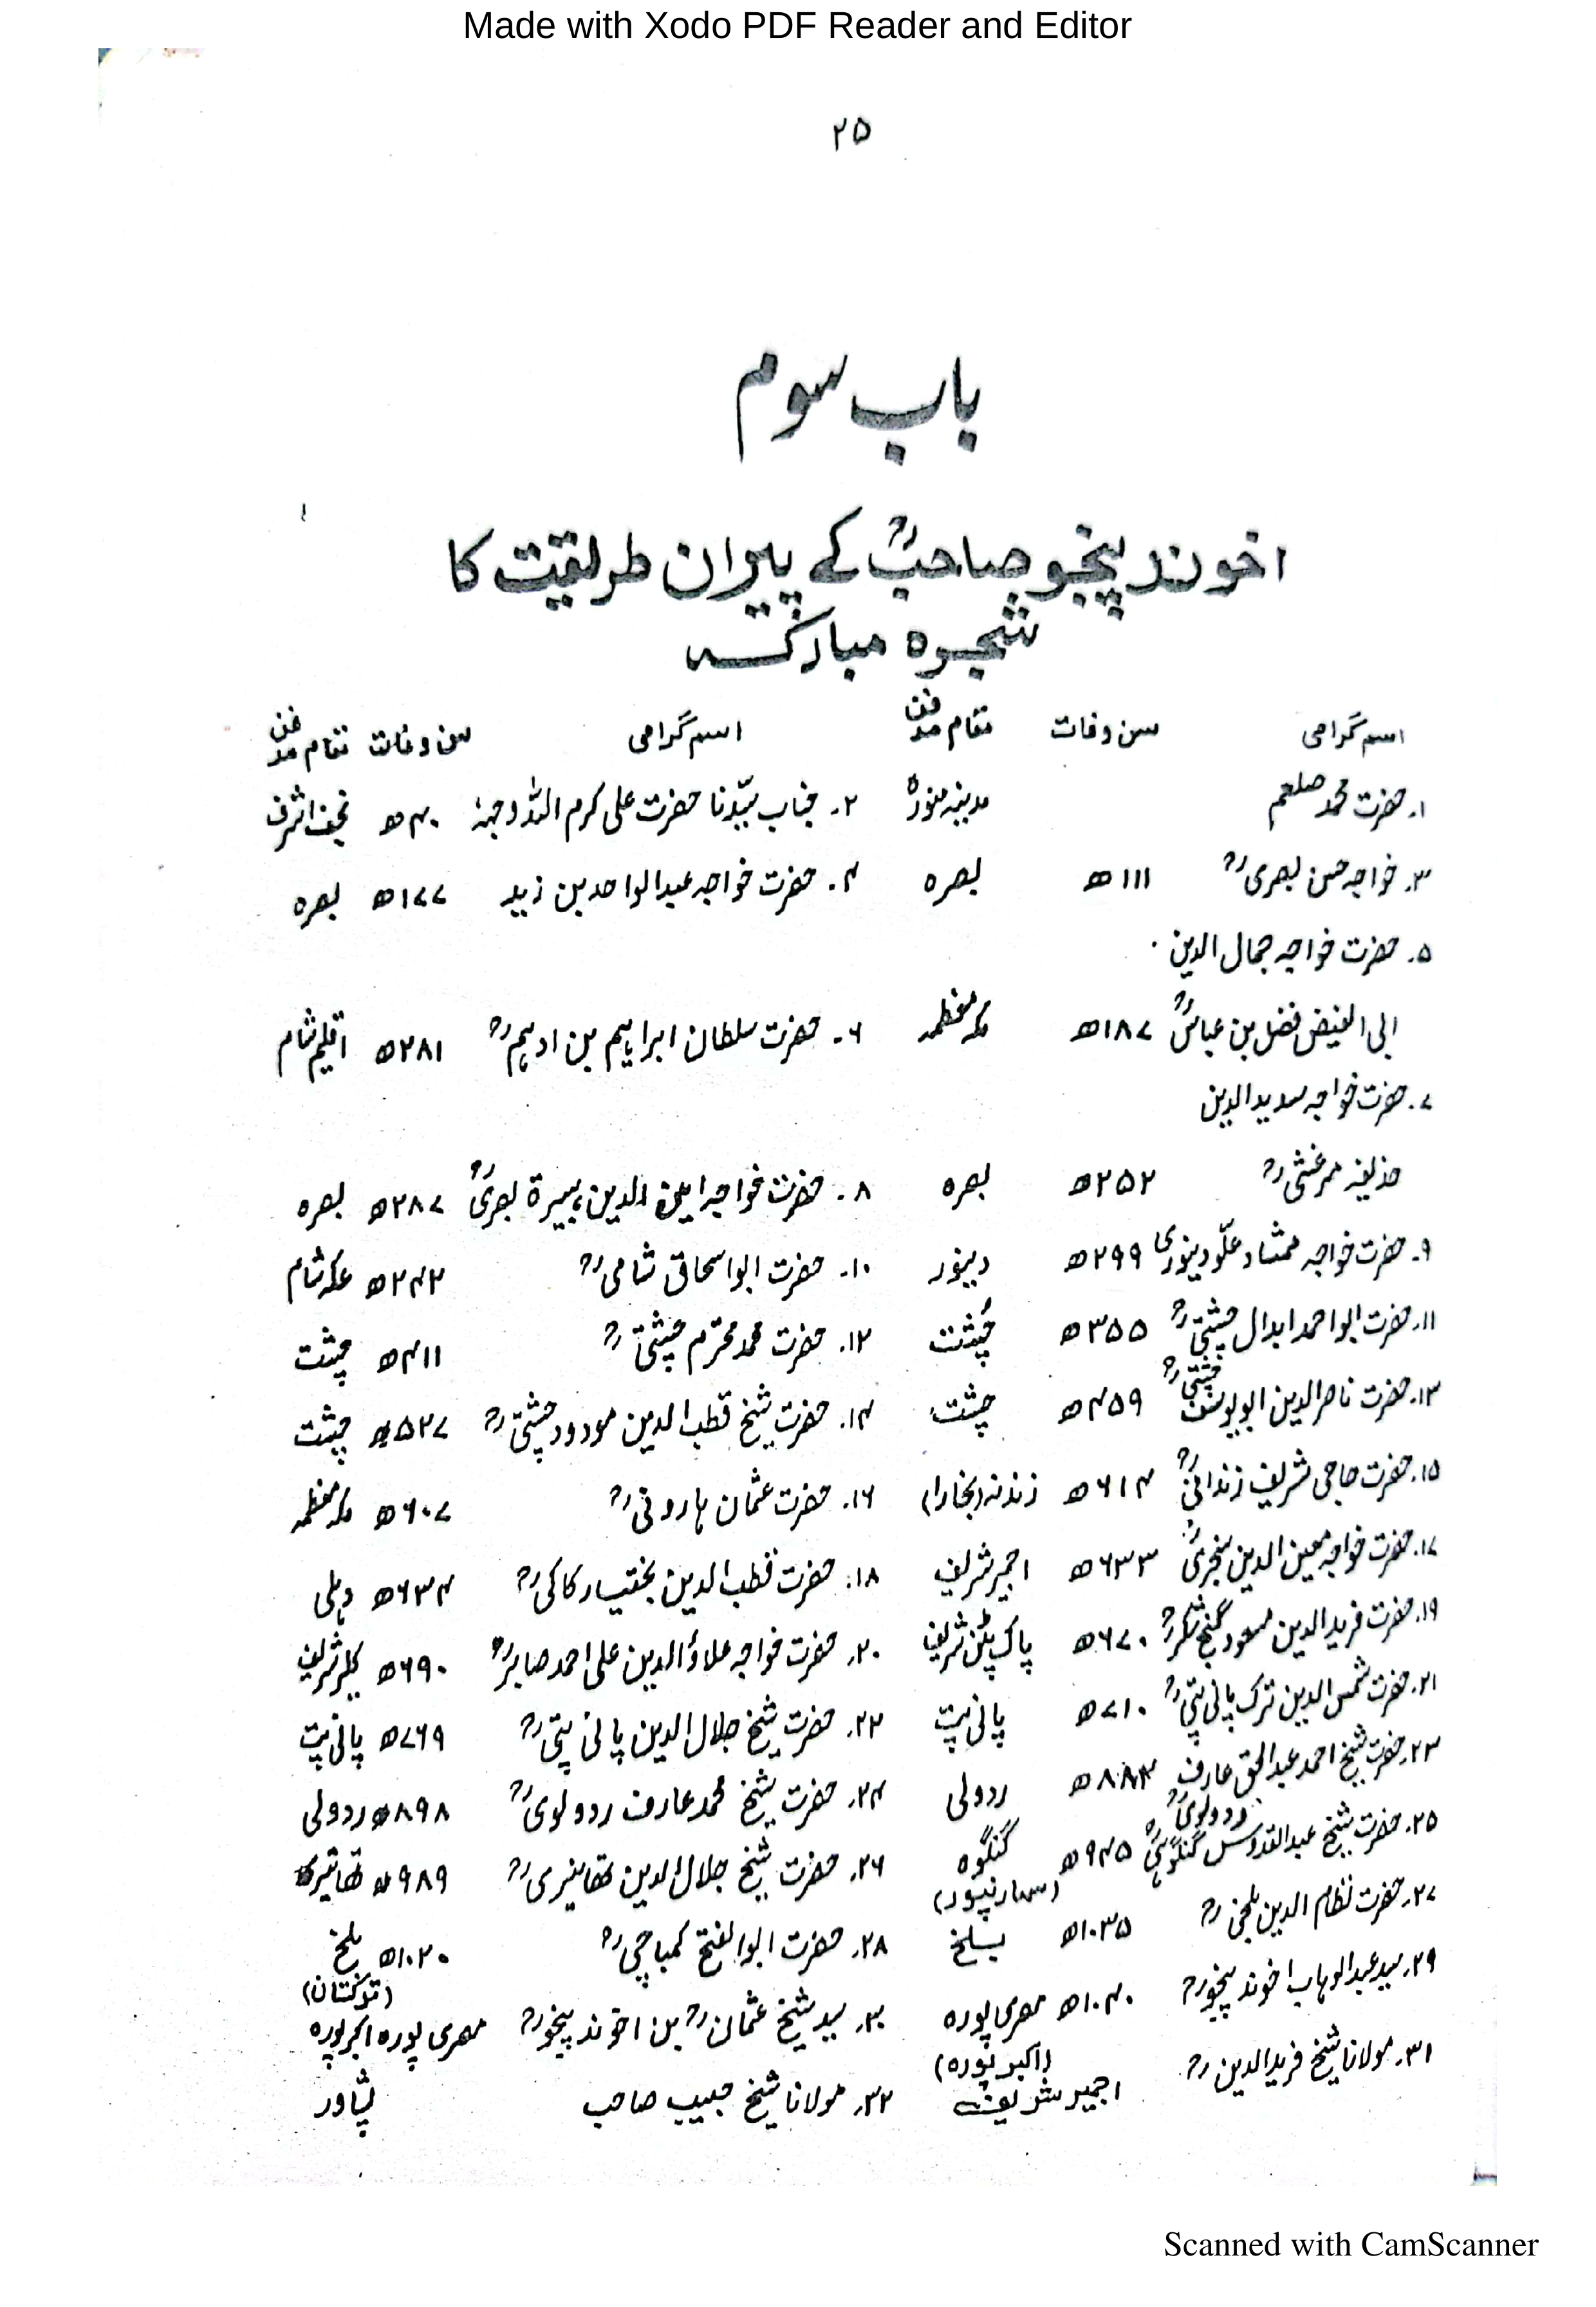 Made with Xodo PDF Reader and Editor
۲۵
باب سوم
اخوند پنجو صاحبؒ کے پیران طریقیت کا
شجرہ مبارکہ
اسم گرامی سن وفات مقام مدفن اسم گرامی سن وفات مقام مدفن
۱۔ حضرت محمد صلعم مدینہ منورہ ۲۔ جناب سیّدنا حضرت علی کرم اللہ وجہہٗ ۴۰ھ نجف اشرف
۳۔ خواجہ حسن بصریؒ ۱۱۱ھ بصرہ ۴۔ حضرت خواجہ عبدالواحد بن زید ۱۷۷ھ بصرہ
۵۔ حضرت خواجہ جمال الدین
ابی الفیض فضل بن عیاضؒ ۱۸۷ھ مکہ معظمہ ۶۔ حضرت سلطان ابراہیم بن ادہمؒ ۲۸۱ھ اقلیم شام
۷۔ حضرت خواجہ سدید الدین
حذیفہ مرعشیؒ ۲۵۲ھ بصرہ ۸۔ حضرت خواجہ امین الدین ہبیرۃ بصریؒ ۲۸۷ھ بصرہ
۹۔ حضرت خواجہ ممشاد علّو دینوری ۲۹۹ھ دینور ۱۰۔ حضرت ابو اسحاق شامیؒ ۳۴۲ھ عکہ شام
۱۱۔ حضرت ابو احمد ابدال چشتیؒ ۳۵۵ھ چشت ۱۲۔ حضرت محمد محترم چشتیؒ ۴۱۱ھ چشت
۱۳۔ حضرت ناصر الدین ابو یوسف چشتیؒ ۴۵۹ھ چشت ۱۴۔ حضرت شیخ قطب الدین مودود چشتیؒ ۵۲۷ھ چشت
۱۵۔ حضرت حاجی شریف زندانیؒ ۶۱۴ھ زندنہ (بخارا) ۱۶۔ حضرت عثمان ہارونیؒ ۶۰۷ھ مکہ معظمہ
۱۷۔ حضرت خواجہ معین الدین سنجریؒ ۶۳۳ھ اجمیر شریف ۱۸۔ حضرت قطب الدین بختیار کاکیؒ ۶۳۴ھ دہلی
۱۹۔ حضرت فرید الدین مسعود گنج شکرؒ ۶۷۰ھ پاک پٹن شریف ۲۰۔ حضرت خواجہ علاؤ الدین علی احمد صابرؒ ۶۹۰ھ کلیر شریف
۲۱۔ حضرت شمس الدین ترک پانی پتیؒ ۷۱۰ھ پانی پت ۲۲۔ حضرت شیخ جلال الدین پانی پتیؒ ۷۶۹ھ پانی پت
۲۳۔ حضرت شیخ احمد عبدالحق عارف ردولویؒ ردولی ۲۴۔ حضرت شیخ محمد عارف ردولویؒ ۸۹۸ھ ردولی
۲۵۔ حضرت شیخ عبدالقدوس گنگوہیؒ ۹۴۵ھ گنگوہ (سہارنپور) ۲۶۔ حضرت شیخ جلال الدین تھانیسریؒ ۹۸۹ھ
۲۷۔ حضرت نظام الدین بلخیؒ ۱۰۳۵ھ بلخ ۲۸۔ حضرت ابو الفتح کمباچیؒ ۱۰۲۰ھ بلخ (ترکستان)
۲۹۔ سید عبدالوہاب اخوند پنجوؒ ۱۰۴۰ھ مصری پورہ (اکبر پورہ) ۳۰۔ سید شیخ عثمانؒ بن اخوند پنجوؒ مصری پورہ اکبر پورہ
۳۱۔ مولانا شیخ فرید الدینؒ اجمیر شریف ۳۲۔ مولانا شیخ حبیب صاحب پشاور
Scanned with CamScanner